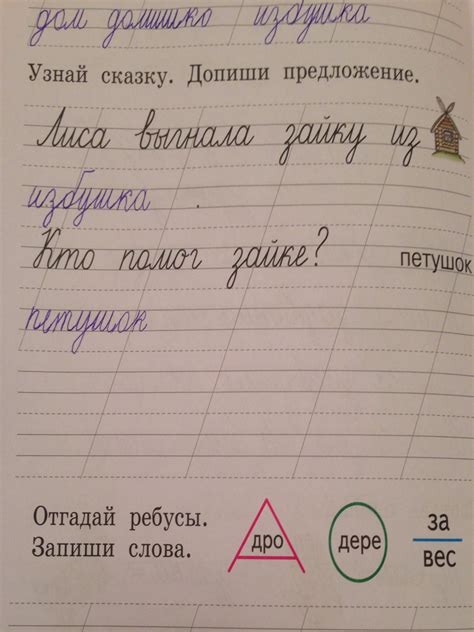 дом домишко избушка
Узнай сказку. Допиши предложение.
Лиса выгнала зайку из
избушка .
Кто помог зайке? петушок
петушок
Отгадай ребусы.
Запиши слова.
дро
дере
за
вес